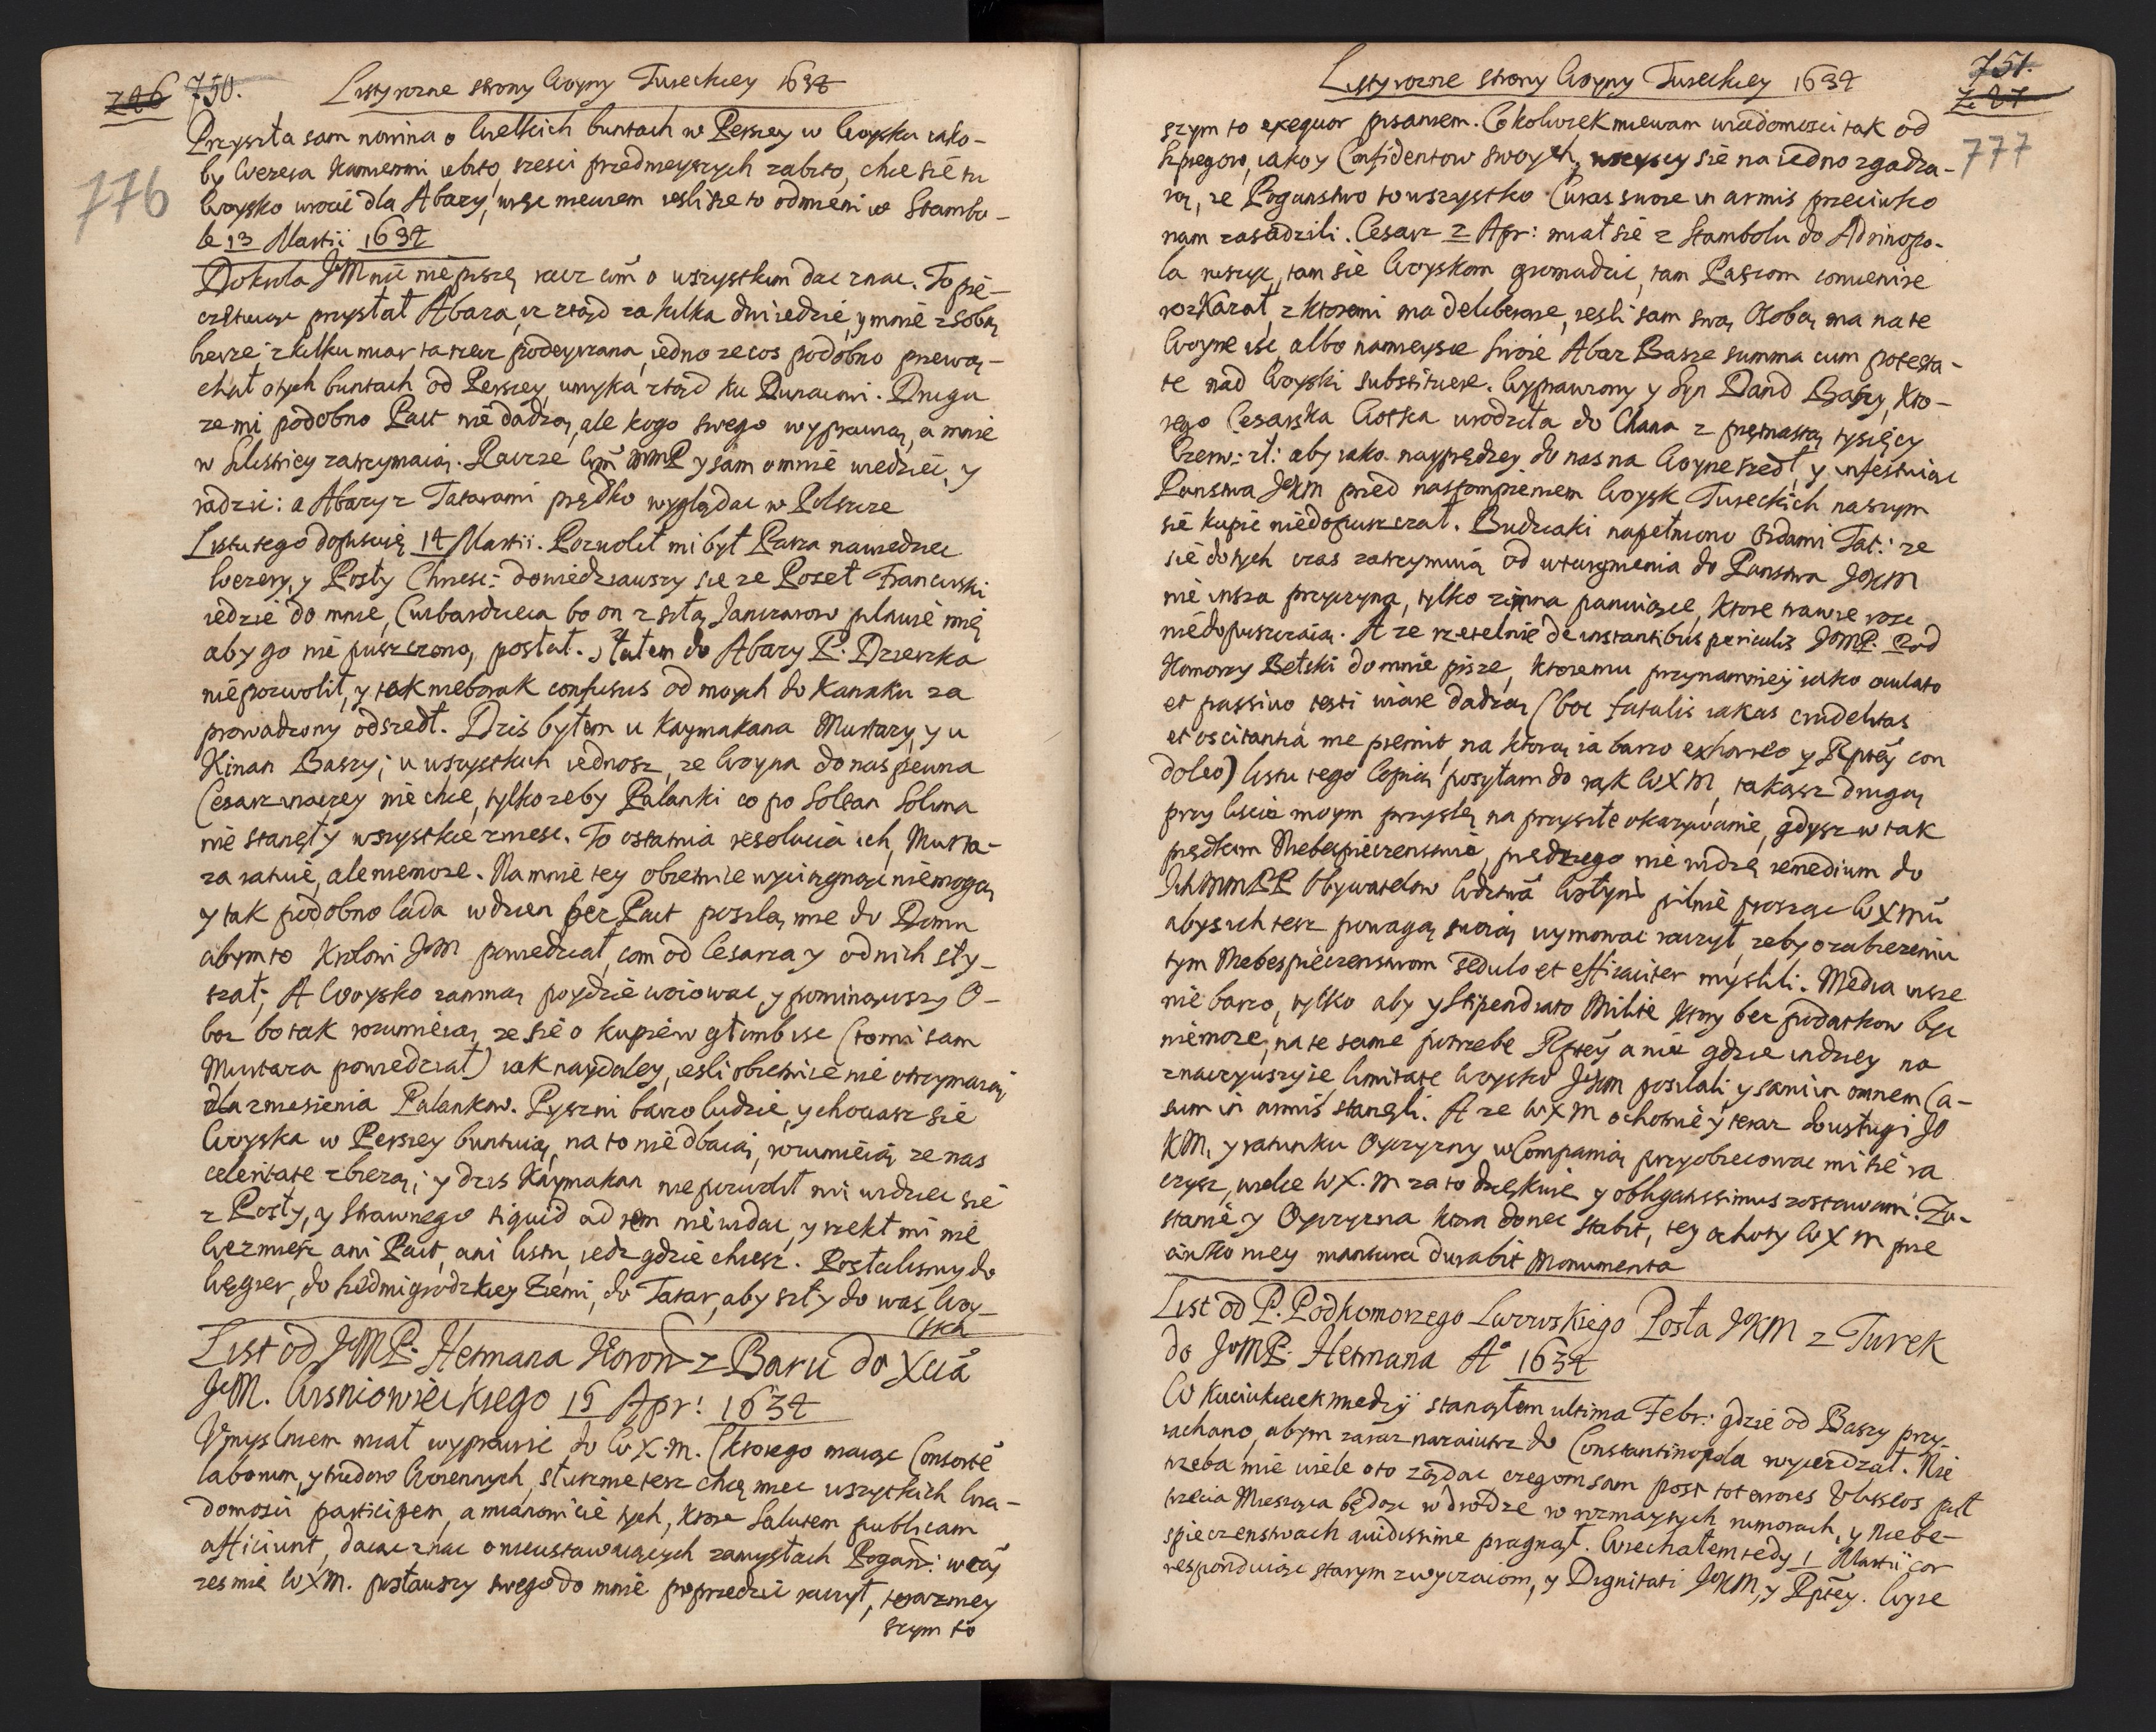 726 750.
Listy rozne strony Woyny Tureckiey 1634
776
Przyszła sam nowina o wielkich buntach w Persiey w Woysku iako-
by Wezera kamienmi ubito, szesci przednieyszych zabito, chce się tu
Woysko wrocić dla Abazy, więc niewiem iesli sie to odmieni w Stambo-
le 13 Martii 1634
Do Krola JeM nic nie piszę racz WM o wszystkim dac znac. To pie-
czętuiąc przysłał Abaza, iz ztąd za kilka dni iedzie, y mnie z sobą
bierze z kilku miar ta rzecz podeyrzana, iedno ze cos podobno przewą-
chał o tych buntach od Persiey, umyka ztąd ku Dunaiowi. Druga
ze mi podobno Pact nie dadzą, ale kogo swego wyprawią, a mnie
w Silistriey zatrzymaią. Raczze WM MMP y sam o mnie wiedziec, y
radzic: a Abazy z Tatarami prędko wyglądac w Polszcze
Listu tego dopisuię 14 Martii. Pozwolił mi był Basza nawiedzic
Wezery, y Posły Chrzesc: dowiedziawszy sie ze Poseł Francuski
iedzie do mnie, Czubardziela bo on z siłą Janczarow pilnuie mię
aby go nie puszczono, posłał. Słałem do Abazy P. Dzierzka
nie pozwolił, y tak niebozak confusus od moych do Kanaku za
prowadzony odszedł. Dzis byłem u Kaymakana Murtazy, y u
Kinan Baszy; u wszystkich iednosz, ze Woyna do nas pewna
Cesarz inaczey nie chce, tylko zeby Palanki co po Soltan Solima
nie stanęły wszystkie zniesc. To ostatnia resolucia ich, Murta-
za ratuie, ale niemoze. Na mnie tey obietnice wyciągnąc niemogą
y tak podobno lada w dzien bez Pact poszlą mie do Domu
abym to Krolowi JeM powiedział, com od Cesarza y od nich sły-
szał; A Woysko za mną poydzie woiowac y pominąwszy O-
boz bo tak rozumieią ze się o kupie w głąmb isc (to mi sam
Murtaza powiedział) iak naydaley, iesli obietnice nie otrzymaią
dla zniesienia Palankow. Pyszni barzo ludzie, y chociasz się
Woyska w Persiey buntuią, na to nie dbaią, rozumieią ze nas
celeritate zbierzą; y dzis Kaymakan nie pozwolił mi widziec się
z Posły, y Strawnego siquid ad rem nie widac, y rzekł mi nie
wezmiesz ani Pact, ani listu, iedz gdzie chcesz. Posłalismy do
Węgier, do Siedmigrodzkiey Ziemi, do Tatar, aby szły do was Woy-
(ska
List od JeMP. Hetmana Koron z Baru do Xcia
JeM. Wisniowieckiego 15 Apr: 1634
Umyslniem miał wyprawic do WX.M. (ktorego maiąc Consorte
laborum, y trudow Woiennych, słusznie tesz chcę miec wszytkich wia-
domosci participem, a mianowicie tych, ktore Salutem publicam
afficiunt, daiąc znac o nieustawaiących zamysłach Pogan: w czy
zes mie WXM. posławszy swego do mnie poprzedzic raczył, terazniey
szym to

751.
777
Listy rozne strony Woyny Tureckiey 1634
szym to exequor pisaniem. Cokolwiek miewam wiadomosci tak od
Szpiegow, iako y Confidentow swoych, wszyscy sie na iedno zgadza-
ią, ze Poganstwo to wszystko Curas swoie in armis przeciwko
nam zasadzili. Cesarz 2 Apr: miał się z Stambołu do Adrinopo-
la ruszyc, tam sie Woyskom gromadzic, tam Baszom convenire
rozkazał, z ktoremi ma deliberare, iesli sam swą Osobą ma na te
Woyne isc, albo na mieysce swoie Abaz Basze summa cum potesta-
te nad Woyski substituere. Wyprawiony y Syn Daud Baszy, kto-
rego Cesarska Ciotka urodziła do Chana z piętnastą tysięcy
Czerw: zł: aby iako nayprędzey do nas na Woyne szedł, y infestuiąc
Panstwa JeKM przed nastąmpieniem Woysk Tureckich naszym
się kupic niedopuszczał. Budziaki napełniono Ordami Tat: ze
się do tych czas zatrzymuią od wtargnienia do Panstwa JeKM
nie insza przyczyna, tylko zimna panuiące, ktore trawie rosc
niedopuszczaią. A ze rzetelnie de instantibus periculis JeMP. Pod
komorzy Bełski do mnie pisze, ktoremu przynamniey iako oculato
et passivo testi wiare dadzą (boc fatalis iakas crudelitas
et oscitantia me premit, na ktorą ia barzo exhorreo y Rptey con
doleo) listu tego Copią posyłam do rąk WXM, takąsz drugą
przy liscie moym przyslę na przyszłe okazywanie, gdysz w tak
prędkim Niebespieczenstwie, prędszego nie widzę remedium do
IchMMPP Obywatelow Wdztwa Wołyn: pilnie prosząc WXMci
abys ich tesz powagą swoią uymowac raczył, zeby o zabiezeniu
tym Niebespieczenstwom sedulo et efficaciter myslili. Media insze
nie barzo, tylko aby y Stipendiato Milite ktory bez podatkow byc
niemoze, na te same potrzebe Rptey a nie gdzie indziey na
znaczywszy ie limitate Woysko JeKM posilali, y sami in omnem Ca-
sum in armis stanęli. A ze WXM ochotnie y teraz do usługi Je
KM, y ratunku Oyczyzny w Companią przyobiecowac mi sie ra
czysz, wielce WX.M za to dziękuie y obligatissimus zostawam. Zo-
stanie y Oyczyzna ktora donec stabit, tey ochoty WXM prze
ciwko niey mansura durabit Monumenta
List od P. Podkomorzego Lwowskiego Posła JeKM z Turek
do JeMP. Hetmana Aº 1634
W Kuciukciekmedzy stanąłem ultima Febr: gdzie od Baszy przy
iachano, abym zaraz nazaiutrz do Constantinopola wyiezdzał. Nie
trzeba mie wiele o to ządac czegom sam post tot errores Ulissios puł
trzecia Miesiąca będąc w drodze w rozmaytych rumorach, y Niebe-
spieczenstwach avidissime pragnął. Wiechałem tedy 1 Martii cor
respondiuiąc starym zwyczaiom, y Dignitati JeKM, y Rptey. Wyie